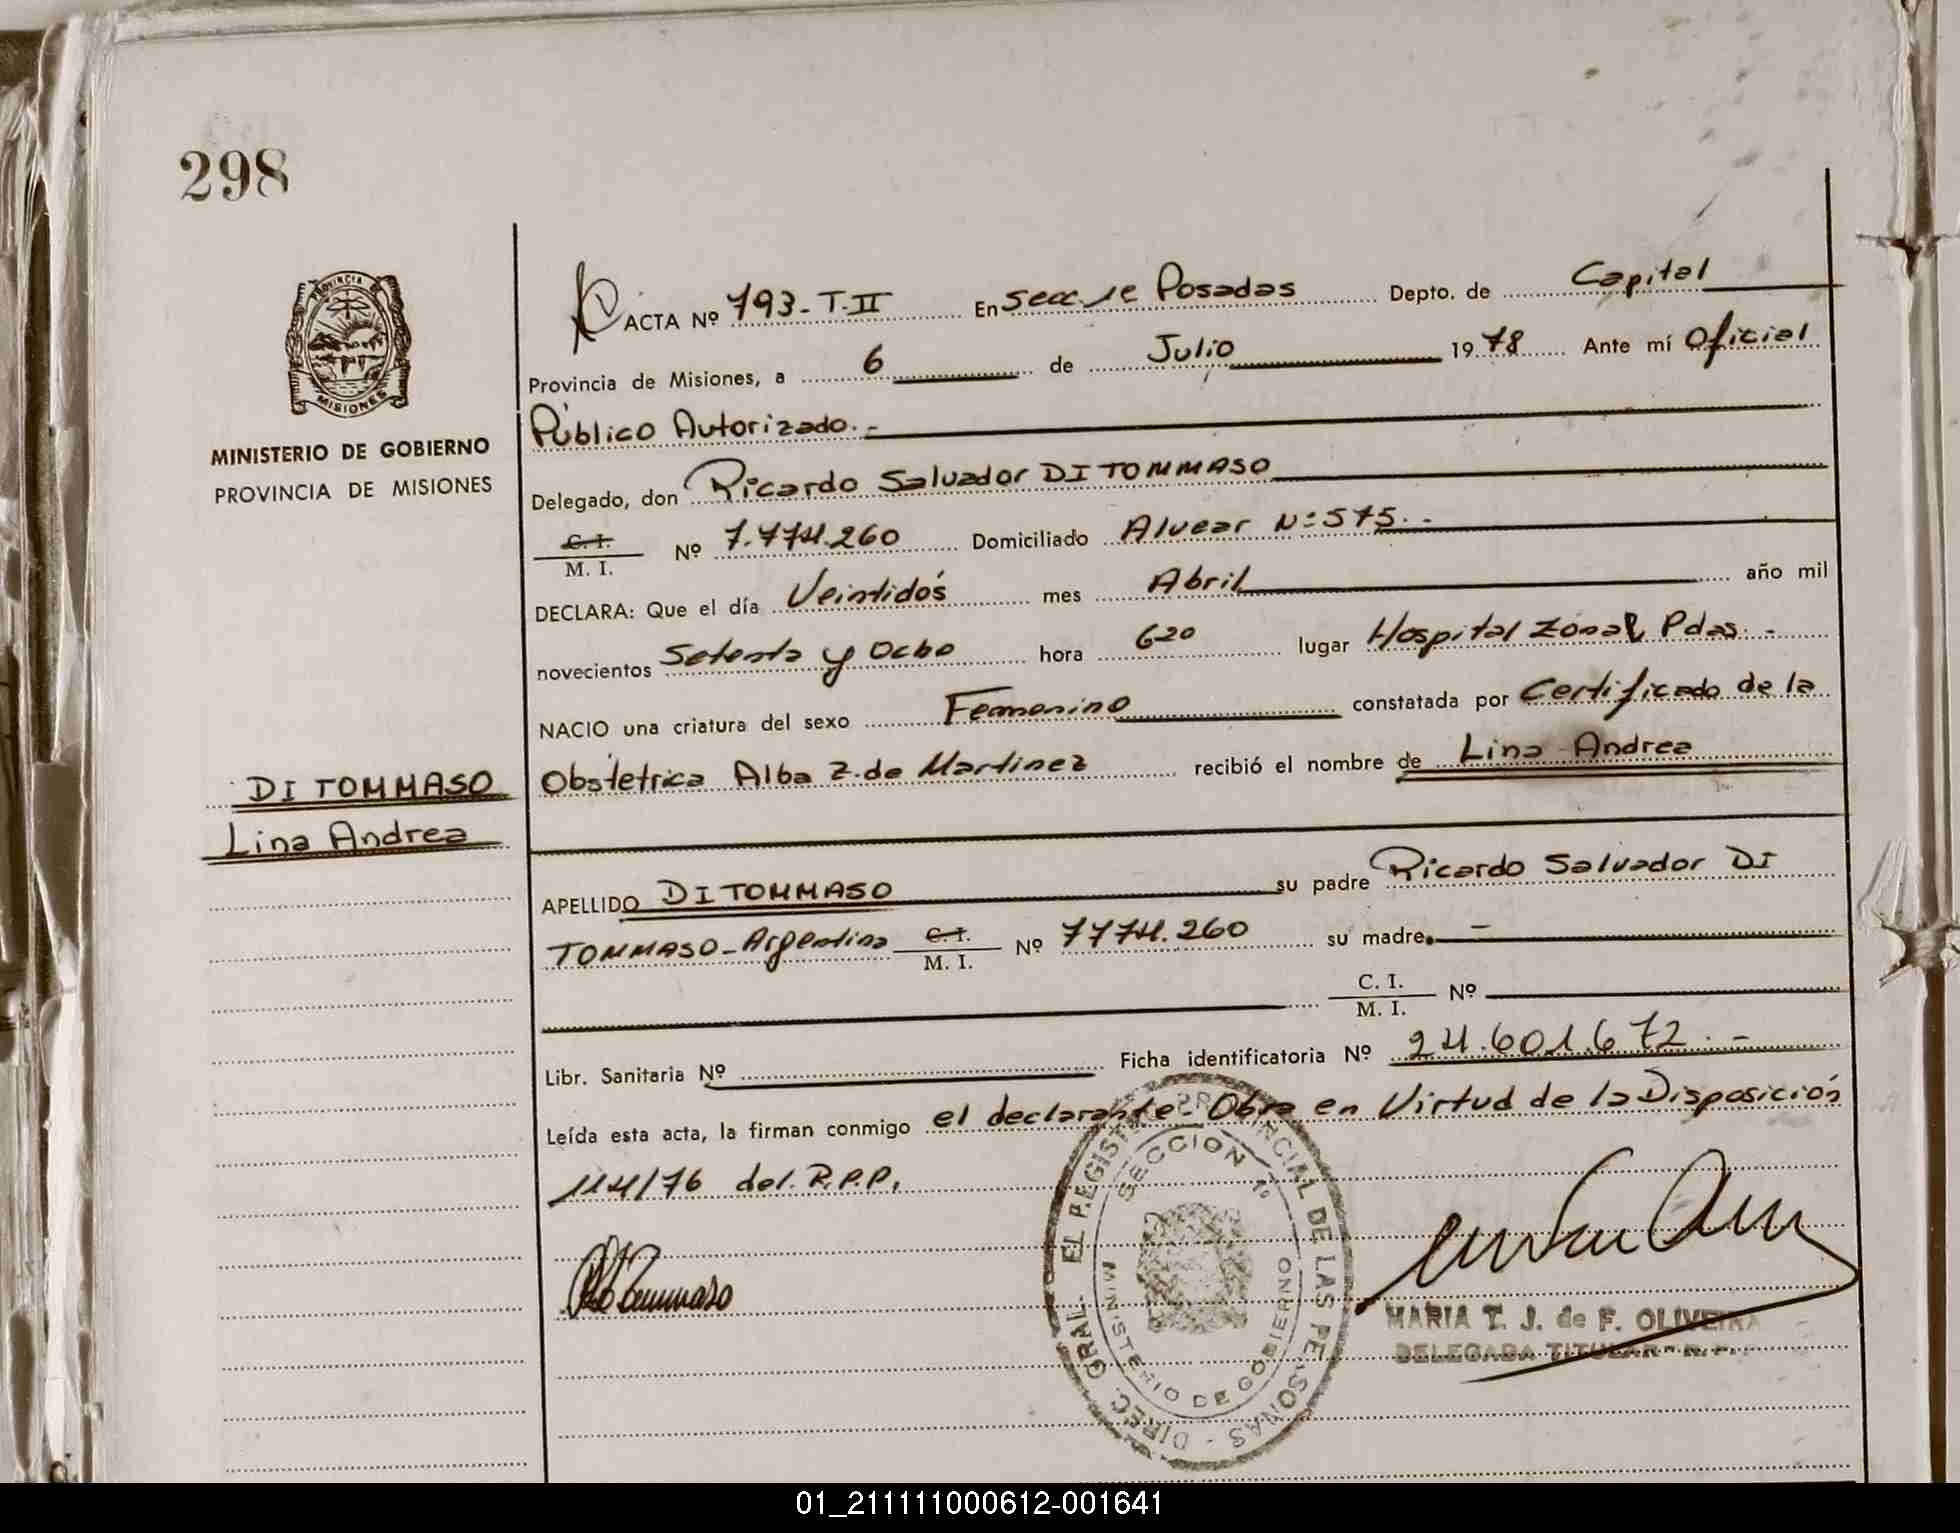 298
PROVINCIA DE
MISIONES
MINISTERIO DE GOBIERNO
PROVINCIA DE MISIONES
ACTA Nº 793-T-II En secc 1e Posadas Depto. de Capital
Provincia de Misiones, a 6 de Julio 1978 Ante mí Oficial
Público Autorizado.-
Delegado, don Ricardo Salvador DI TOMMASO
C. I.
M. I. Nº 7.774.260 Domiciliado Alvear Nº 575.-
DECLARA: Que el día Veintidós mes Abril año mil
novecientos Setenta y Ocho hora 620 lugar Hospital Zonal Pdas.-
NACIO una criatura del sexo Femenino constatada por Certificado de la
Obstetrica Alba Z. de Martinez recibió el nombre de Lina Andrea
DI TOMMASO
Lina Andrea
APELLIDO DI TOMMASO su padre Ricardo Salvador DI
TOMMASO-Argentino C. I.
M. I. Nº 7774.260 su madre. -
C. I.
M. I. Nº
Libr. Sanitaria Nº Ficha identificatoria Nº 24.601.672.-
Leída esta acta, la firman conmigo el declarante- Obra en Virtud de la Disposición
114/76 del R.P.P.
DIREC. GRAL. EL REGISTRO PROVINCIAL DE LAS PERSONAS -
SECCION 1º
MINISTERIO DE GOBIERNO
MARIA T. J. de F. OLIVEIRA
DELEGADA TITULAR
01_211111000612-001641